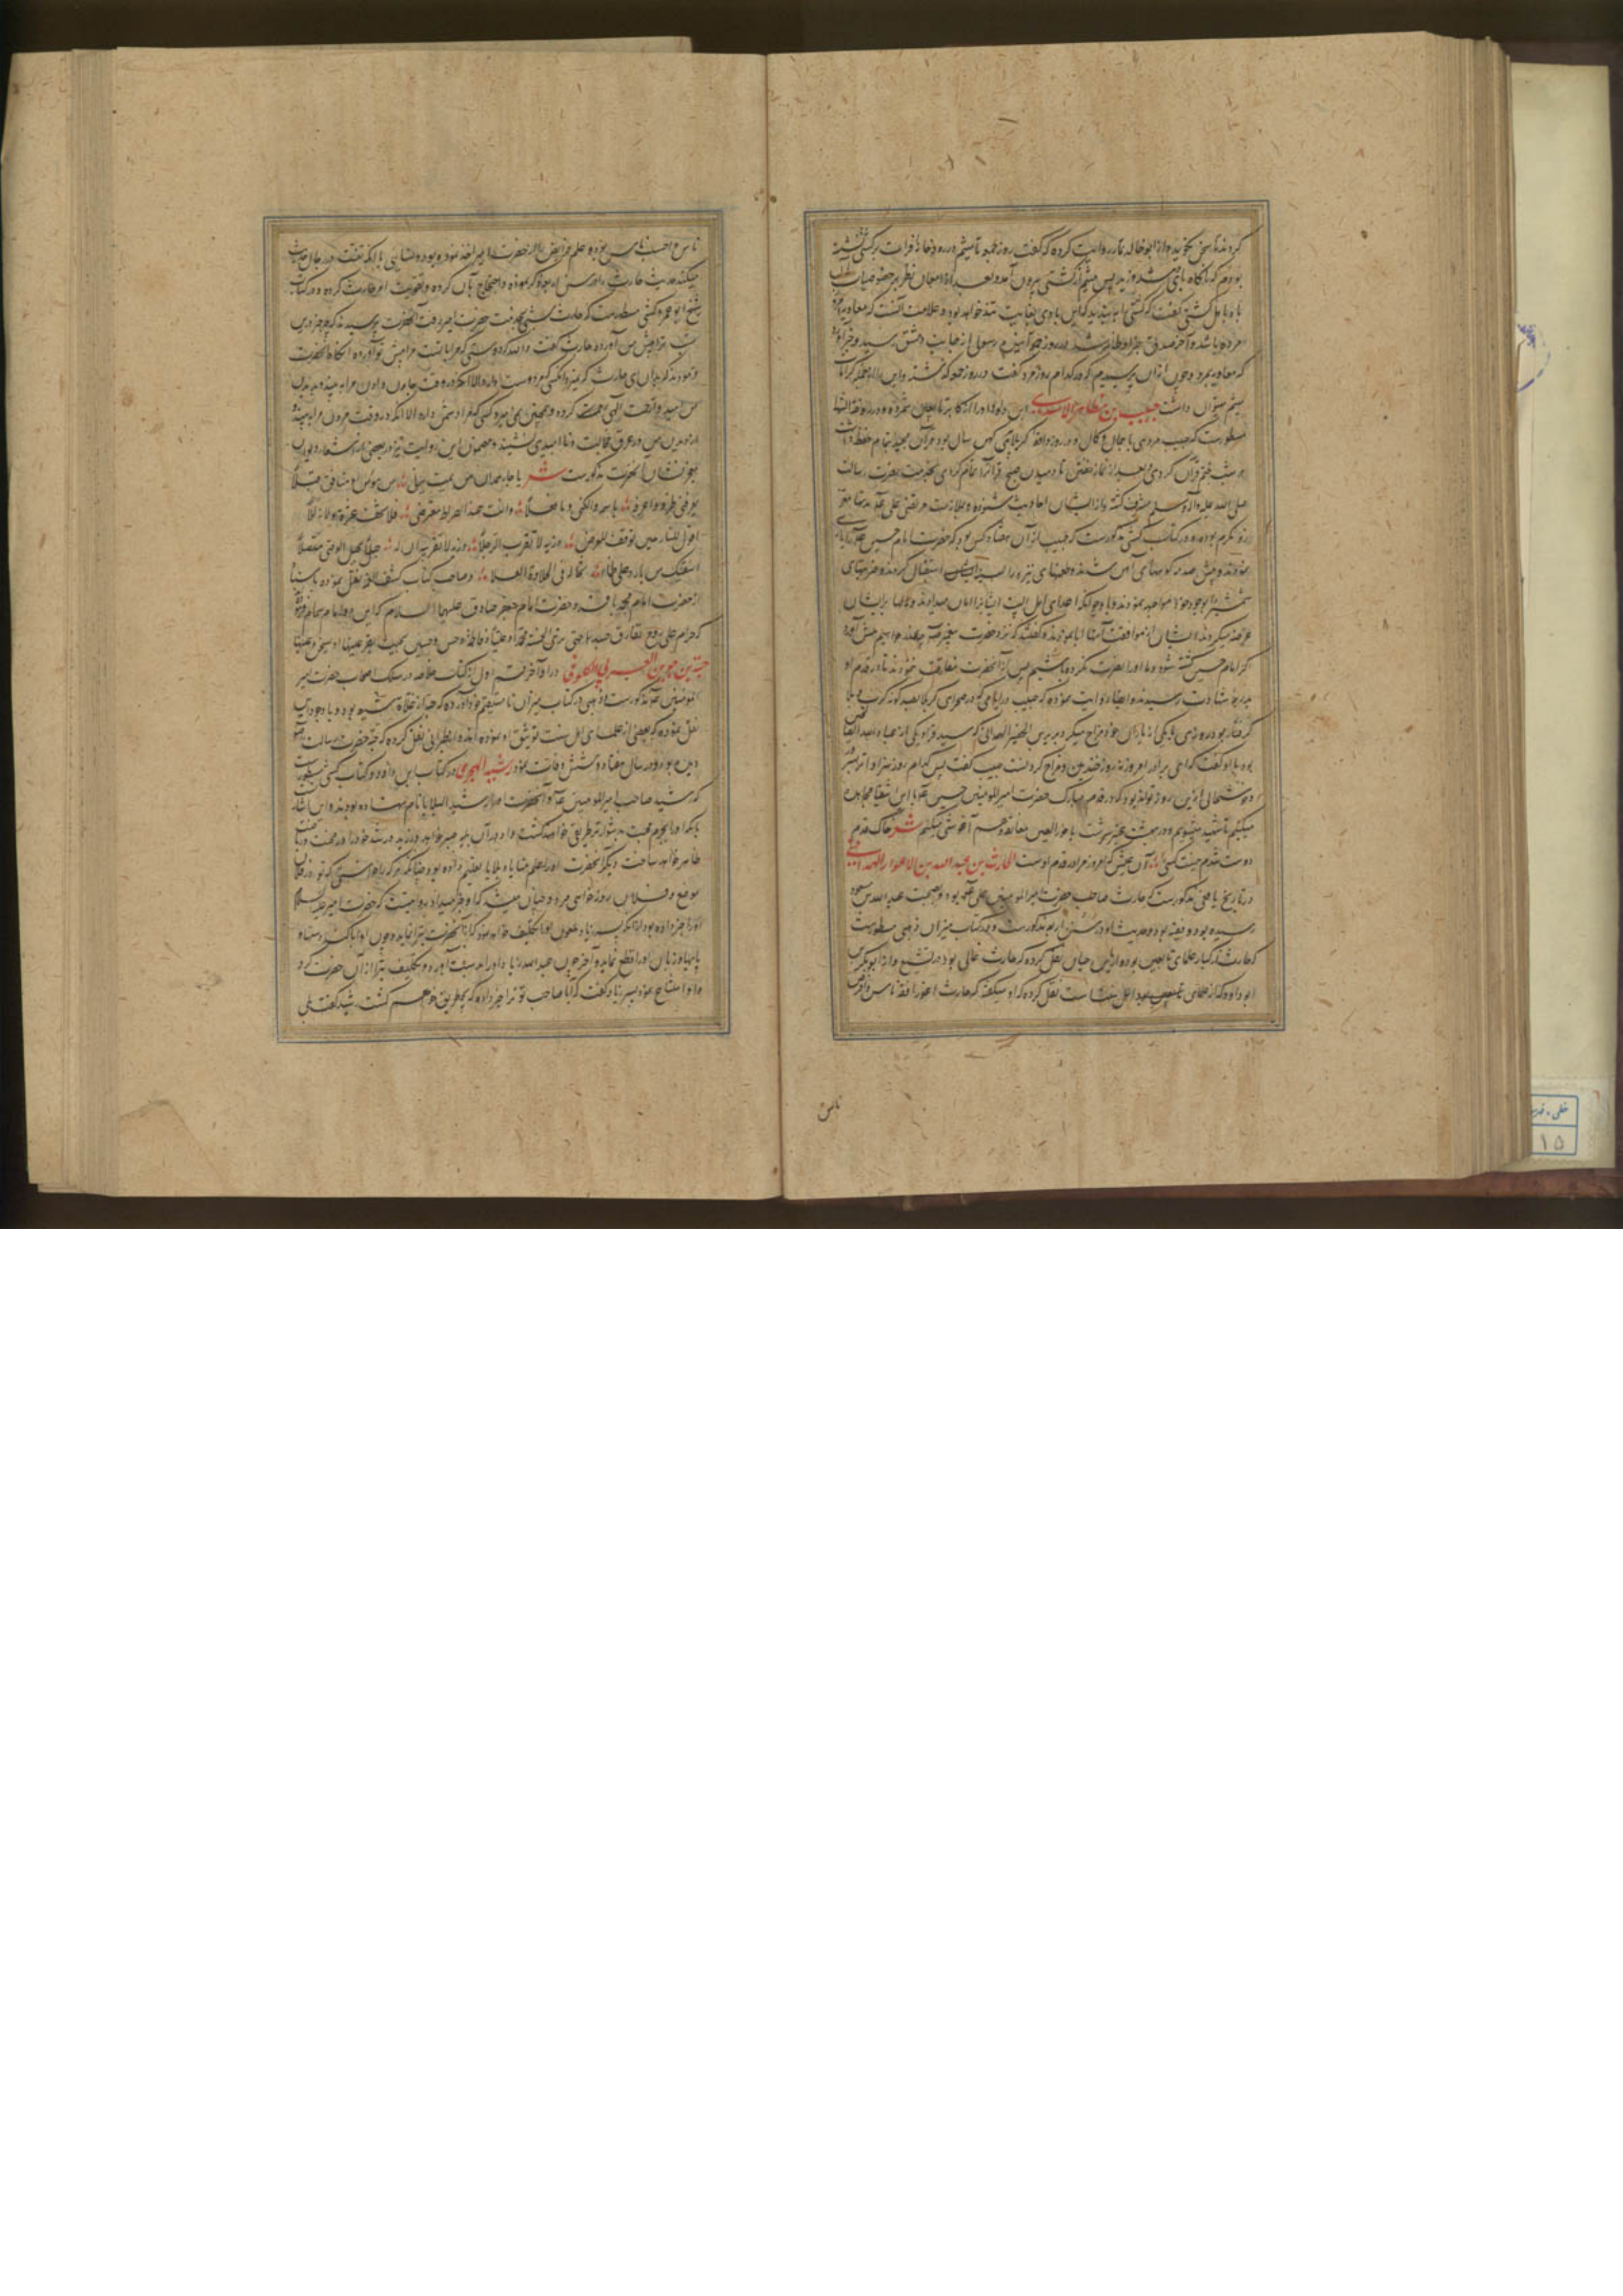 کردند تا سخن نگوید و از ابو خالد تمار روایت کرده که گفت روز جمعه با میثم در رودخانه فرات بر کشتی نشسته
بودیم که ناگاه بادی شد و زید پس میثم از کشتی بیرون آمد و بعد از امعان نظر بر خصوصیات آن
با اهل کشتی گفت که کشتی را ببندید که این باد بغایت تند خواهد بود و علامت آنست که معاویه
مرده باشد و آخر صدق خبر او ظاهر شد و در روز جمعه آینده رسولی از جانب دمشق رسید و خبر آورد
که معاویه بمرد و چون از آن پرسیدم که در کدام روز مرد گفت در روز جمعه که گذشته و این را از جمله کرامات
میثم میتوان داشت حبیب بن مظاهر الاسدی ابن داود او را از اکابر تابعان شمرده و در روضة الشهدا
مسطورست که حبیب مردی با جمال و کمال و در روز واقعه کربلا پیر کهن سال بود و قرآن مجید تمام حفظ داشت
هر شب ختم قرآن کردی و بعد از نماز خفتن تا دمیدن صبح قرآن را تمام کردی بخدمت حضرت رسالت
صلی الله علیه و آله و سلم مشرف گشته و از ایشان احادیث شنوده و بملازمت مرتضی علی
و مکرم بوده و در کتاب کشی مذکورست که حبیب از آن هفتاد کس بود که حضرت امام حسین را یاری
نمودند و پیش صدمه کوههای آهن شدند و طعنهای نیزه را استقبال کردند و ضربتهای
شمشیر را بوجود خود مواجهه نمودند و با وجود آنکه اعدای اهل البیت ایشان را امان میدادند و مالها بر ایشان
عرضه میکردند ایشان از موافقت آنها ابا نمودند و گفتند که نزد حضرت پیغمبر چه عذر خواهیم پیش آورد
اگر امام حسین کشته شود و ما او را نصرت نکرده باشیم پس از آنحضرت مفارقت ننمودند تا در قدم او
بدرجه شهادت رسیدند و ایضا روایت نموده که حبیب در ایامی که در صحرای کربلا بصد گونه کرب و بلا
گرفتار بود روزی با یکی از یاران خود مزاح میکرد بریر بن الخضیر الهمدانی که سید قرا و یکی از عباد
بود با او گفت که ای برادر امروز نه روز خندیدن و مزاح کردنست حبیب گفت پس کدام روز سزاوارتر
و خوشحالی ازین روز تواند بود که در قدم مبارک حضرت امیرالمومنین حسین با این اشقیا مجاهده
میکنیم تا شهید میشویم و در بهشت عنبرسرشت با حور العین معانقه و هم آغوشی میکنیم شعر خاک قدم
دوست شدم چیست کسی را آن عیش که امروز مرا در قدم اوست الحارث بن عبدالله بن الاعور الهمدانی
در تاریخ یافعی مذکورست که حارث صاحب حضرت امیرالمومنین علی بود و بصحبت عبدالله بن مسعود
رسیده بود و فقیه بود و حدیث او در سنن اربعه مذکورست و در کتاب میزان ذهبی مسطورست
که حارث از کبار علمای تابعین بوده ابن حبان نقل کرده که حارث غالی بود در تشیع و از ابوبکر بن
ابی داود که از علمای اهل سنت است نقل کرده که او میگفته که حارث اعور افقه ناس و افرض
ناس
ناس و احسب ناس بود و علم فرایض را از حضرت امیر اخذ نموده بود و نسایی با آنکه تعنت در رجال حدیث
میکند حدیث حارث را در سنن اربعه ذکر نموده و احتجاج بآن کرده و تقویت امر حارث کرده و در کتاب
شیخ ابوعمرو کشی مسطورست که حارث شبی بخدمت حضرت امیر رفت آنحضرت پرسیدند که چه چیز درین
شب ترا پیش من آورده حارث گفت والله که دوستی که مرا با تست مرا پیش تو آورده آنگاه آنحضرت
فرمودند که بدان ای حارث که نمیرد آنکسی که مرا دوست دارد الا آنکه در وقت جان دادن مرا به بیند و بدیدن
من امیدوار رحمت الهی گردد و همچنین نمی‌میرد کسی که مرا دشمن دارد الا آنکه در وقت مردن مرا به بیند و
از دیدن من در عرق خجالت و ناامیدی نشیند و مضمون این روایت نیز در بعضی از اشعار دیوان
معجزنشان آنحضرت مذکورست شعر یا حار همدان من یمت یرنی من مومن او منافق قبلا
یعرفنی طرفه و اعرفه باسمه و الکنی و ما فعلا و انت عند الصراط معترضی فلا تخف عثرة و لا زللا
اقول للنار حین توقف للعرض ذریه لا تقربی الرجلا ذریه لا تقربیه ان له حبلا بحبل الوصی متصلا
اسقیک من بارد علی ظما تخاله فی الحلاوة العسلا و صاحب کتاب کشف الغمه نقل نموده باسناد
از حضرت امام محمد باقر و حضرت امام جعفر صادق علیهما السلام که این دو امام همام فرمودند
که حرام علی روح تفارق جسدها حتی تری الخمسة محمدا و علیا و فاطمة و حسن و حسین بحیث تقر عینها او تسخن عینها
حبة بن جوین العرنی الکوفی در آخر قسم اول از کتاب خلاصه در سلک اصحاب حضرت امیر
المومنین مذکورست و ذهبی در کتاب میزان نامستقیم خود آورده که حبه از غلاة شیعه بود و با وجود این
نقل نموده که بعضی از علمای اهل سنت توثیق او نموده‌اند و از طبرانی نقل کرده که حبه حضرت رسالت
دیده بود و در سال هفتاد و شش وفات نمود رشید الهجری در کتاب ابن داود و کتاب کشی مسطورست
که رشید صاحب امیرالمومنین و آنحضرت او را رشید البلایا نام نهاده بودند و این اشارت
بآنکه او را بجرم محبت بدشوارترین طریقی خواهند کشت و او در آن بلیه صبر خواهد ورزید و رشد خود را در محبت
ظاهر خواهد ساخت دیگر آنحضرت او را علم منایا و بلایا تعلیم داده بود چنانکه هر که را خواستی که تو در فلان
موضع و فلان روز خواهی مرد و چنان میشد که او خبر میداد و روایت است که حضرت امیر علیه السلام
او را خبر داده بود از آنکه پسر زیاد ملعون او را تکلیف خواهد نمود که از آنحضرت تبرا نماید و چون او ابا کند دستها و
پایها و زبان او را قطع نماید و آخر چون عبیدالله زیاد او را بدست آورد و تکلیف تبرا از آن حضرت کرد
و او امتناع نمود پسر زیاد گفت که آیا صاحب تو ترا خبر داده که بچه طریق خواهم کشت رشید گفت بلی